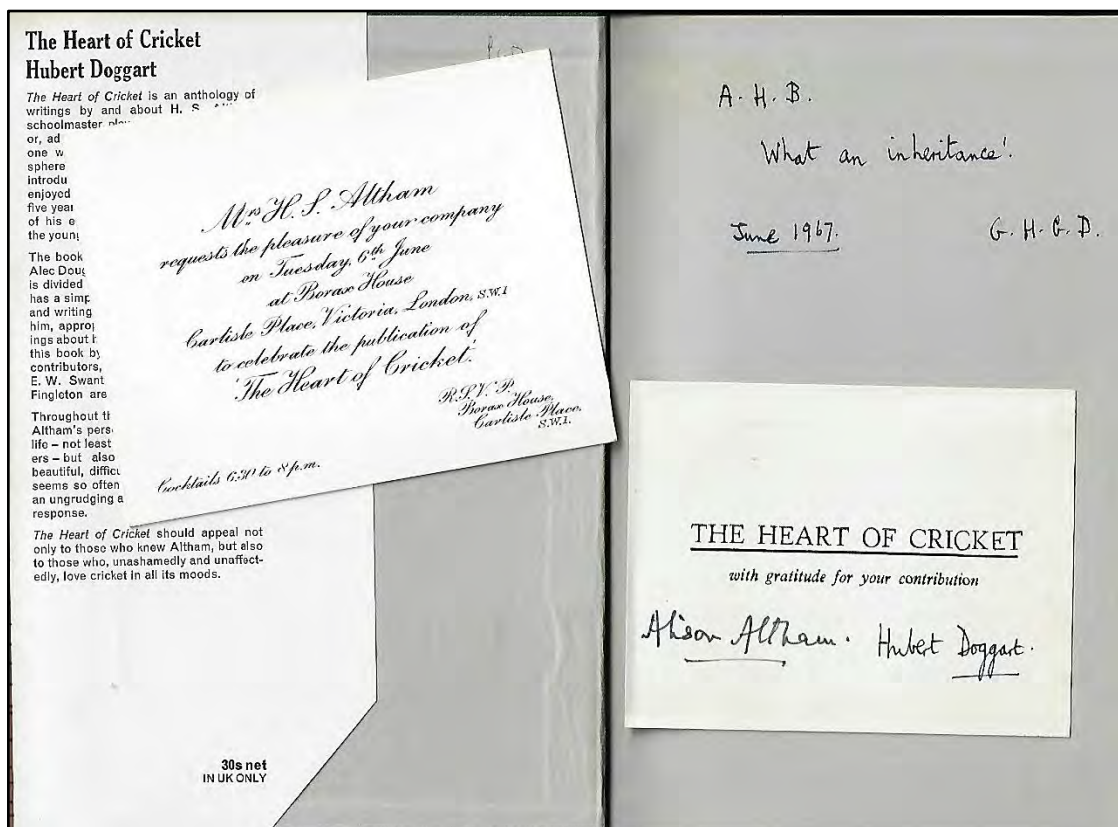 The Heart of Cricket
Hubert Doggart
The Heart of Cricket is an anthology of
writings by and about H. S.
schoolmaster
or, ad
one w
sphere
introdu
enjoyed
five year
of his e
the young
The book
Alec Doug
is divided
has a simp
and writing
him, approp
ings about h
this book by
contributors,
E. W. Swant
Fingleton are
Throughout th
Altham's pers
life – not least
ers – but also
beautiful, difficu
seems so often
an ungrudging a
response.
The Heart of Cricket should appeal not
only to those who knew Altham, but also
to those who, unashamedly and unaffect-
edly, love cricket in all its moods.
30s net
IN UK ONLY
Mrs H. S. Altham
requests the pleasure of your company
on Tuesday, 6th June
at Borax House
Carlisle Place, Victoria, London, S.W.1
to celebrate the publication of
'The Heart of Cricket.'
R.S.V.P.
Borax House,
Carlisle Place,
S.W.1.
Cocktails 6.30 to 8 p.m.
A. H. B.
What an inheritance!
June 1967.
G. H. G. D.
THE HEART OF CRICKET
with gratitude for your contribution
Alison Altham. Hubert Doggart.